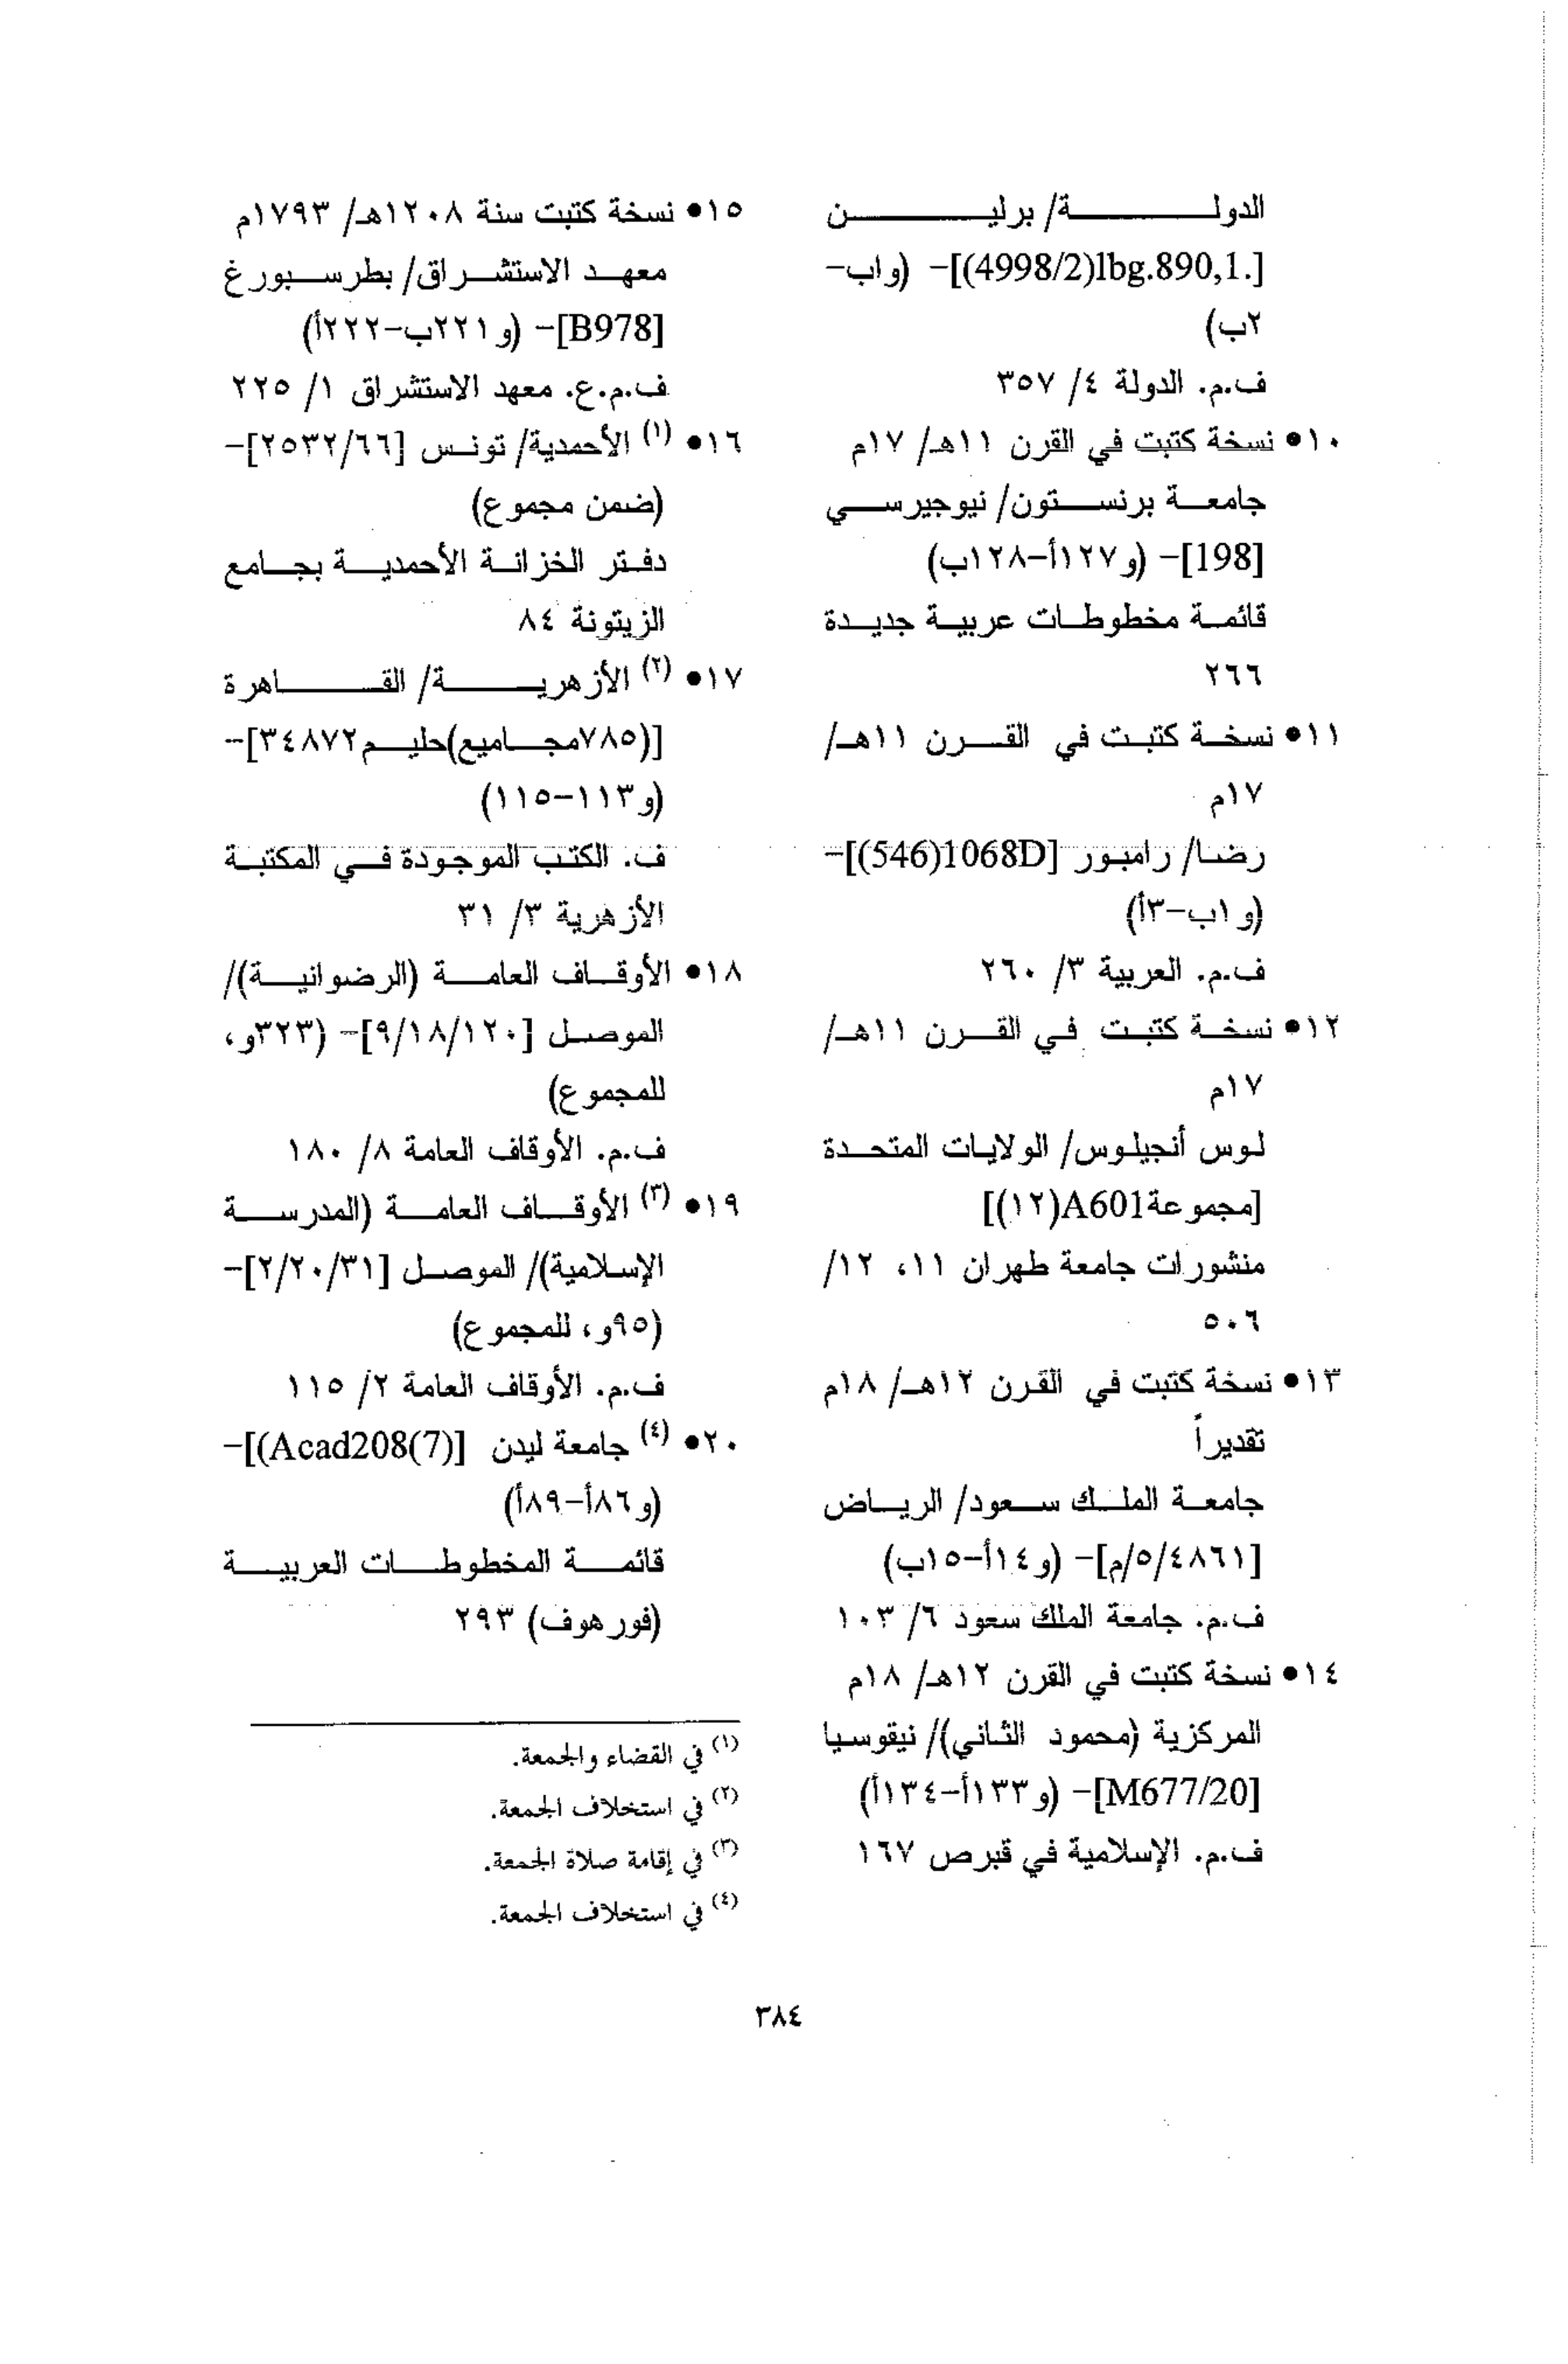 الدولـــة/ برليـــن
[.lbg.890,1(4998/2)]- (و١ب-
٢ب)
ف.م. الدولة ٤/ ٣٥٧
١٠• نسخة كتبت في القرن ١١هـ/ ١٧م
جامعة برنستون/ نيوجيرسي
[198]- (و١٢٧أ-١٢٨ب)
قائمة مخطوطات عربية جديدة
٢٦٦
١١• نسخة كتبت في القرن ١١هـ/
١٧م
رضا/ رامبور [1068D(546)]-
(و١ب-٣أ)
ف.م. العربية ٣/ ٢٦٠
١٢• نسخة كتبت في القرن ١١هـ/
١٧م
لوس أنجيلوس/ الولايات المتحدة
[مجموعةA601(١٢)]
منشورات جامعة طهران ١١، ١٢/
٥٠٦
١٣• نسخة كتبت في القرن ١٢هـ/ ١٨م
تقديراً
جامعة الملك سعود/ الرياض
[٥/٤٨٦١/م]- (و١٤أ-١٥ب)
ف.م. جامعة الملك سعود ٦/ ١٠٣
١٤• نسخة كتبت في القرن ١٢هـ/ ١٨م
المركزية (محمود الثاني)/ نيقوسيا
[M677/20]- (و١٣٣أ-١٣٤أ)
ف.م. الإسلامية في قبرص ١٦٧
١٥• نسخة كتبت سنة ١٢٠٨هـ/ ١٧٩٣م
معهد الاستشراق/ بطرسبورغ
[B978]- (و٢٢١ب-٢٢٢أ)
ف.م.ع. معهد الاستشراق ١/ ٢٢٥
١٦• (١) الأحمدية/ تونس [٢٥٣٢/٦٦]-
(ضمن مجموع)
دفتر الخزانة الأحمدية بجامع
الزيتونة ٨٤
١٧• (٢) الأزهرية/ القاهرة
[(٧٨٥مجاميع)حليم٣٤٨٧٢]-
(و١١٣-١١٥)
ف. الكتب الموجودة في المكتبة
الأزهرية ٣/ ٣١
١٨• الأوقاف العامة (الرضوانية)/
الموصل [٩/١٨/١٢٠]- (٣٢٣و،
للمجموع)
ف.م. الأوقاف العامة ٨/ ١٨٠
١٩• (٣) الأوقاف العامة (المدرسة
الإسلامية)/ الموصل [٢/٢٠/٣١]-
(٩٥و، للمجموع)
ف.م. الأوقاف العامة ٢/ ١١٥
٢٠• (٤) جامعة ليدن [(Acad208(7)]-
(و٨٦أ-٨٩أ)
قائمة المخطوطات العربية
(فورهوف) ٢٩٣
(١) في القضاء والجمعة.
(٢) في استخلاف الجمعة.
(٣) في إقامة صلاة الجمعة.
(٤) في استخلاف الجمعة.
٣٨٤